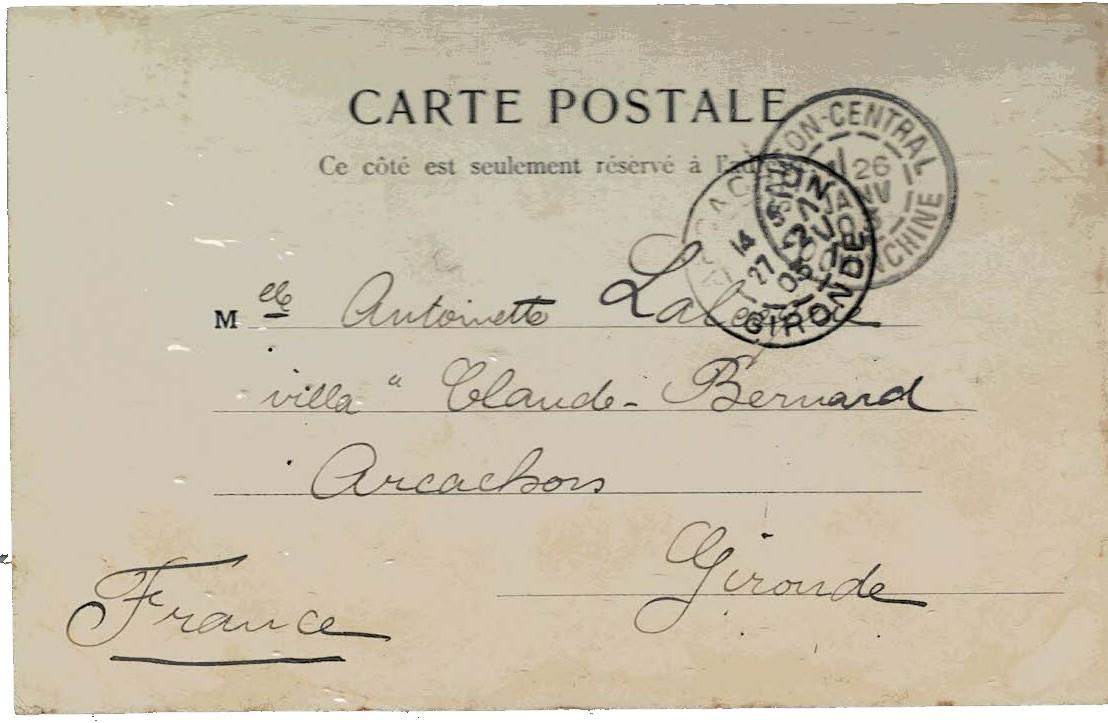 CARTE POSTALE
Ce côté est seulement réservé à
SAIGON-CENTRAL
26
COCHINCHINE
ARCACHON
14
27
05
GIRONDE
M elle Antoinette
villa " Claude-Bernard
Arcachon
Gironde
France